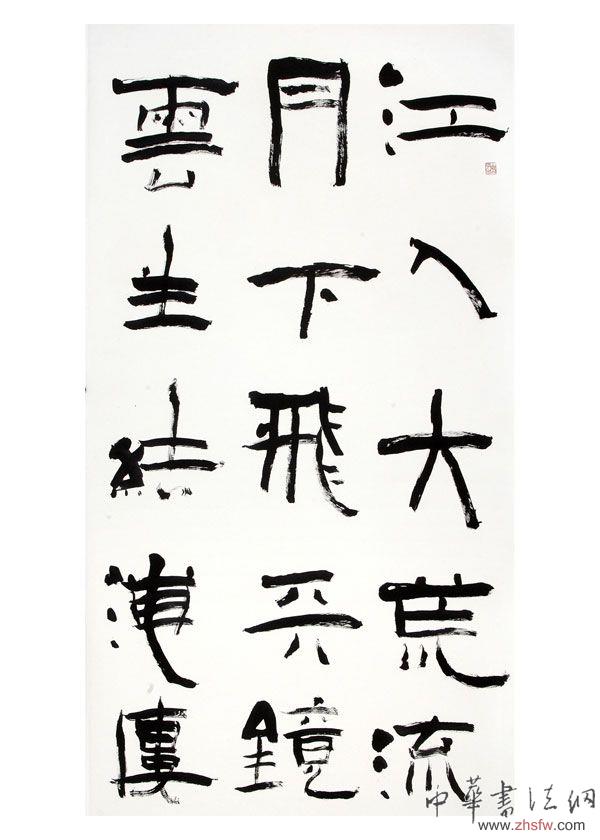 江入大荒流
月下飛天鏡
雲生結海樓
中華書法網
www.zhsfw.com